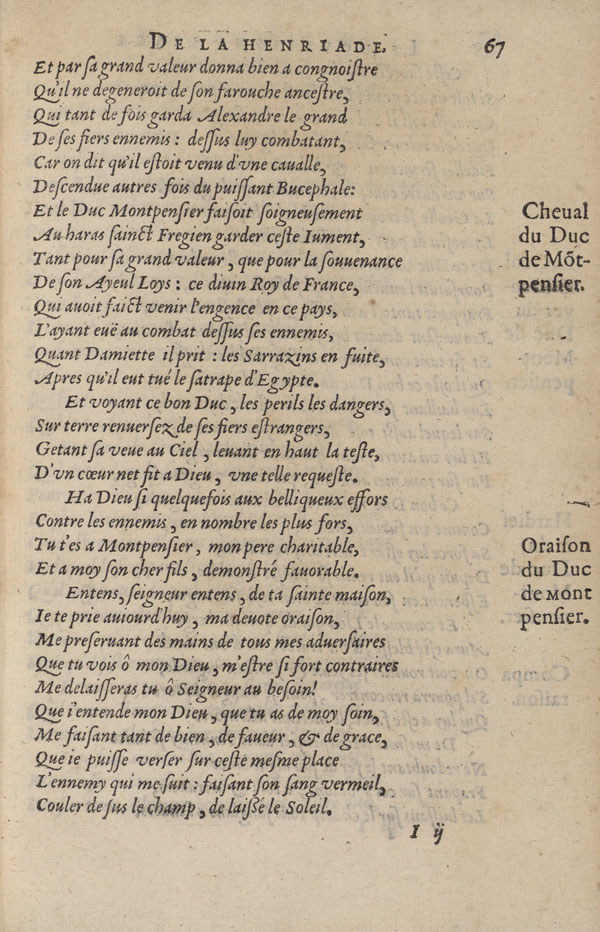 DE LA HENRIADE. 67
Et par sa grand valeur donna bien a congnoistre
Qu'il ne degeneroit de son farouche ancestre,
Qui tant de fois garda Alexandre le grand
De ses fiers ennemis : dessus luy combatant,
Car on dit qu'il estoit venu d'vne caualle,
Descendue autres fois du puissant Bucephale:
Et le Duc Montpensier faisoit soigneusement
Au haras sainct Fregien garder ceste Iument,
Tant pour sa grand valeur, que pour la souuenance
De son Ayeul Loys : ce diuin Roy de France,
Qui auoit faict venir l'engence en ce pays,
L'ayant euë au combat dessus ses ennemis,
Quant Damiette il prit : les Sarrazins en fuite,
Apres qu'il eut tué le satrape d'Egypte.
Et voyant ce bon Duc, les perils les dangers,
Sur terre renuersez de ses fiers estrangers,
Getant sa veue au Ciel, leuant en haut la teste,
D'vn cœur net fit a Dieu, vne telle requeste.
Ha Dieu si quelquefois aux belliqueux effors
Contre les ennemis, en nombre les plus fors,
Tu t'es a Montpensier, mon pere charitable,
Et a moy son cher fils, demonstré fauorable.
Entens, seigneur entens, de ta sainte maison,
Ie te prie auiourd'huy, ma deuote oraison,
Me preseruant des mains de tous mes aduersaires
Que tu vois ô mon Dieu, m'estre si fort contraires
Me delaisseras tu ô Seigneur au besoin!
Que i'entende mon Dieu, que tu as de moy soin,
Me faisant tant de bien, de faueur, & de grace,
Que ie puisse verser sur ceste mesme place
L'ennemy qui me suit : faisant son sang vermeil,
Couler de sus le champ, de laissé le Soleil.
I ij
Cheual
du Duc
de Mõt-
pensier.
Oraison
du Duc
de MONT
pensier.